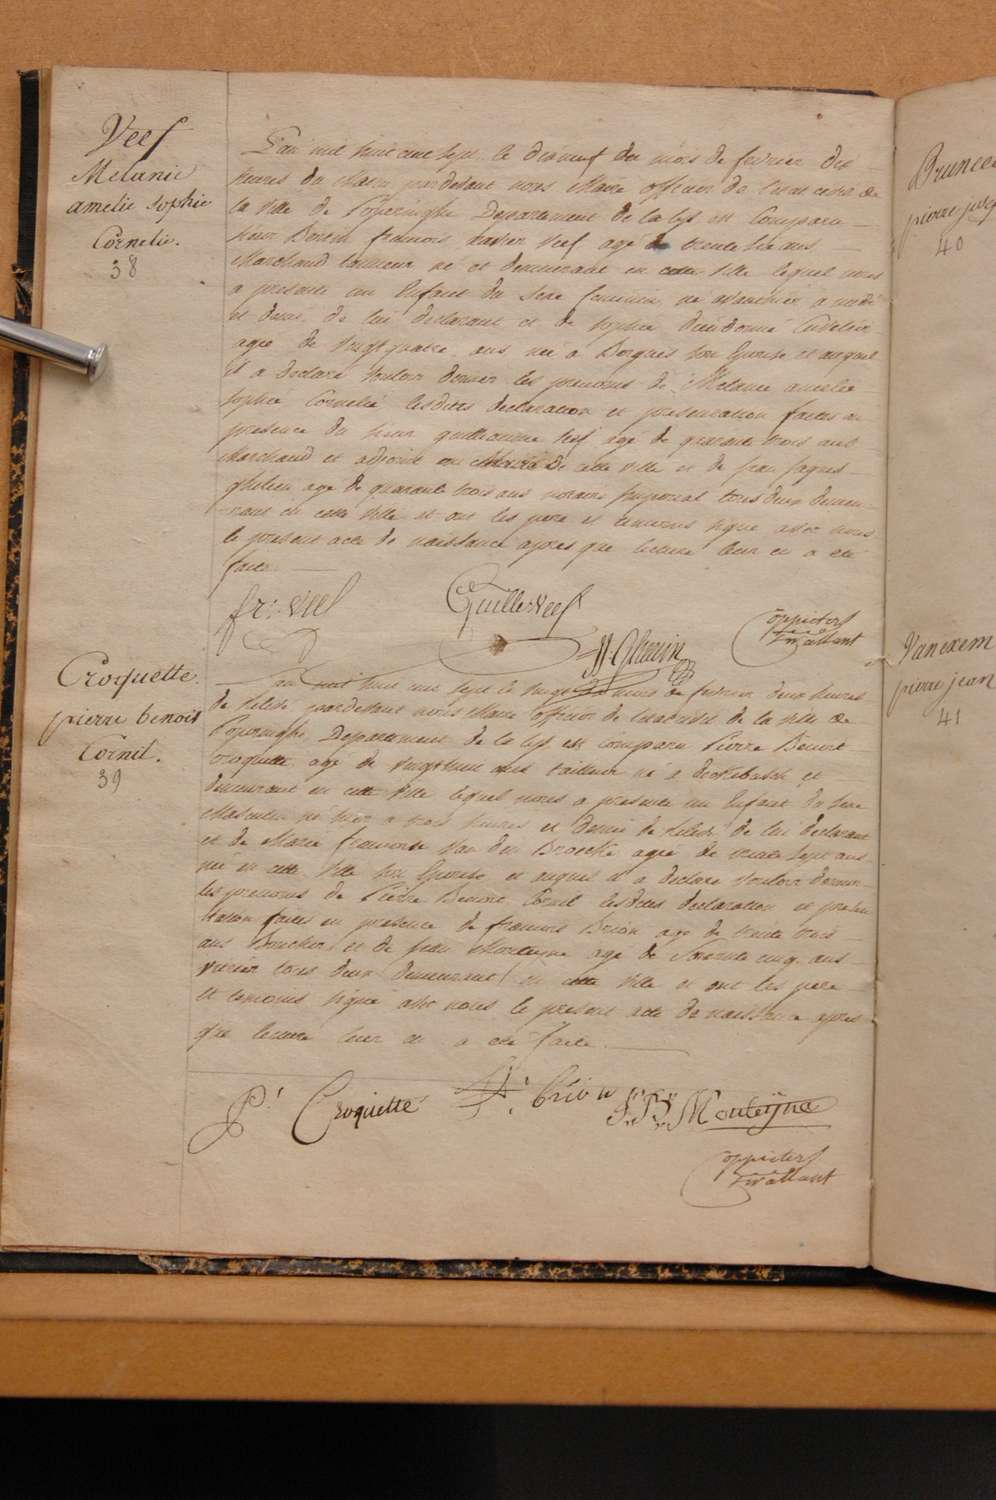 Veef
Melanie
amelie Sophie
Cornelie.
38
L'an mil huit cent sept le dixneuf du mois de fevrier dix
heures du Matin pardevant nous Maire officier de l'etat civil de
la ville de Poperinghe Departement de la Lys est Comparu
Sieur francois xavier Veef agé de trente six ans
Marchand tanneur né et demeurant en cette Ville lequel nous
a presente un Enfant du Sexe feminin né a midi
et demi de lui declarant et de Sophie Dieudonné
agée de Vingt quatre ans née a Bergues Son Epouse et auquel
il a declare Vouloir donner les prenoms de Melanie amelie
Sophie Cornelie lesdites declaration et presentation faites en
presence du Sieur guillaume Veef agé de quarante trois ans
Marchand et adjoint au Maire de cette Ville et de jean jaques
ghelein age de quarante trois ans notaire Imperial tous deux demeu-
rant en cette Ville et ont les pere et temoins signé avec nous
le present acte de naissance apres que lecture leur en a été
faite.
fr: Veef
Guille Veef
JJ Ghelein
Coppieters
Stvallant
Croquette.
pierre benoit
Cornil.
39
L'an mil huit cent sept le vingt du mois de fevrier deux heures
de relevée pardevant nous Maire officier de l'etat civil de la Ville de
Poperinghe Departement de la Lys est comparu Pierre Benoit
Croquette age de Vingt huit ans tailleur né a dickebusch et
demeurant en cette Ville lequel nous a presente un Enfant du Sexe
Masculin né hier a trois heures et demie de relevée de lui declarant
et de Marie francoise Van den Broucke agée de trente Sept ans
née en cette Ville Son Epouse et auquel il a declare Vouloir donner
les prenoms de Pierre Benoit Cornil lesdites declaration et presen
tation faites en presence de francois Brion age de trente trois
ans Boucher et de jean Monteyne agé de Soixante cinq ans
tous deux demeurant en cette Ville et ont les pere
et temoins signé avec nous le present acte de naissance apres
que lecture leur en a été faite.
P: Croquette
fr: Brion
J: B: Monteyne
Coppieters
Stvallant
pierre
40
Vanexem
pierre jean
41